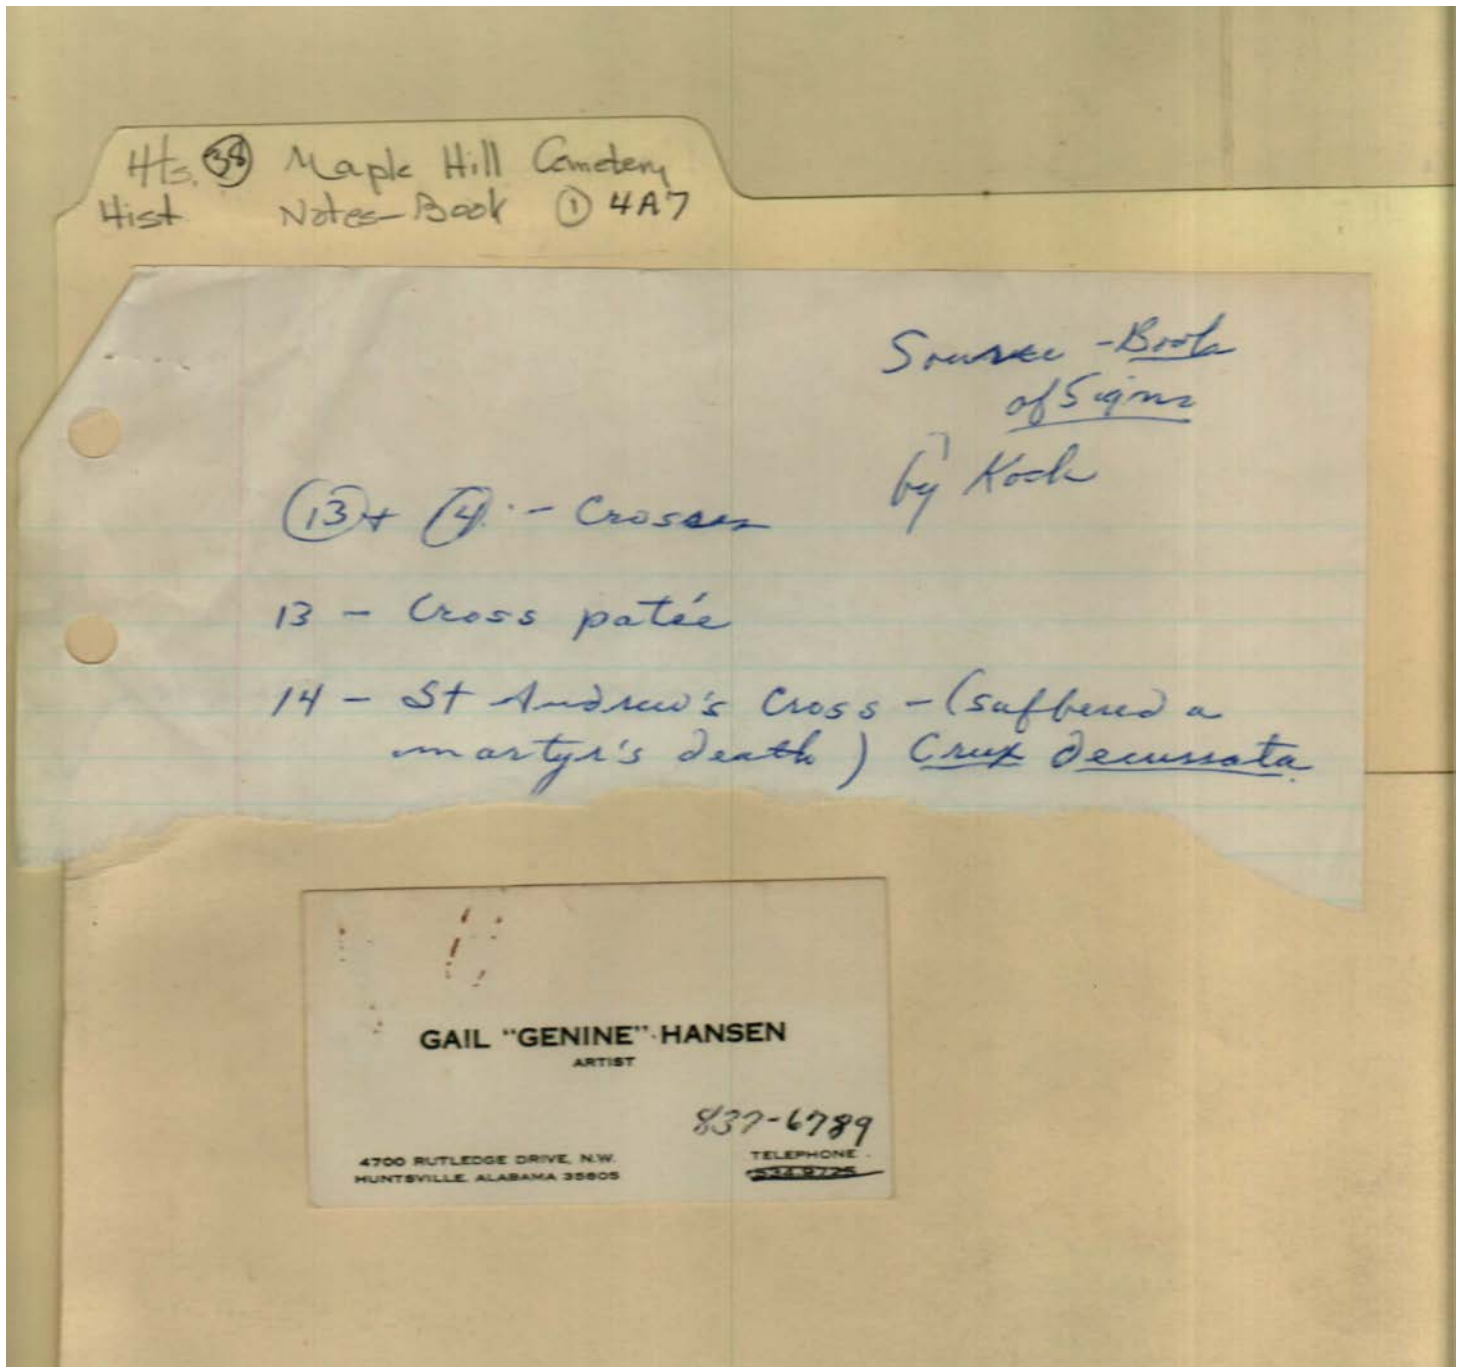 Hts. 38 Maple Hill Cemetery
Hist Notes-Book 1 4A7
Source - Book
of Signs
by Koch
13 + 14 - Crosses
13 - Cross patée
14 - St Andrew's Cross - (suffered a
martyr's death) Crux decussata
GAIL "GENINE" HANSEN
ARTIST
837-6789
4700 RUTLEDGE DRIVE, N.W.
TELEPHONE
HUNTSVILLE, ALABAMA 35805